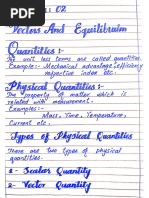 : 02
Vectors And Equilibrium
Quantities :-
The unit less terms are called quantities.
Examples:- Mechanical advantage, efficiency
refractive index etc.
Physical Quantities :-
The property of matter which is
related with measurement.
Examples:-
Mass, Time, Temperature,
Current etc.
Types of Physical Quantities
There are two types of physical
quantities.
1- Scalar Quantity
2- Vector Quantity